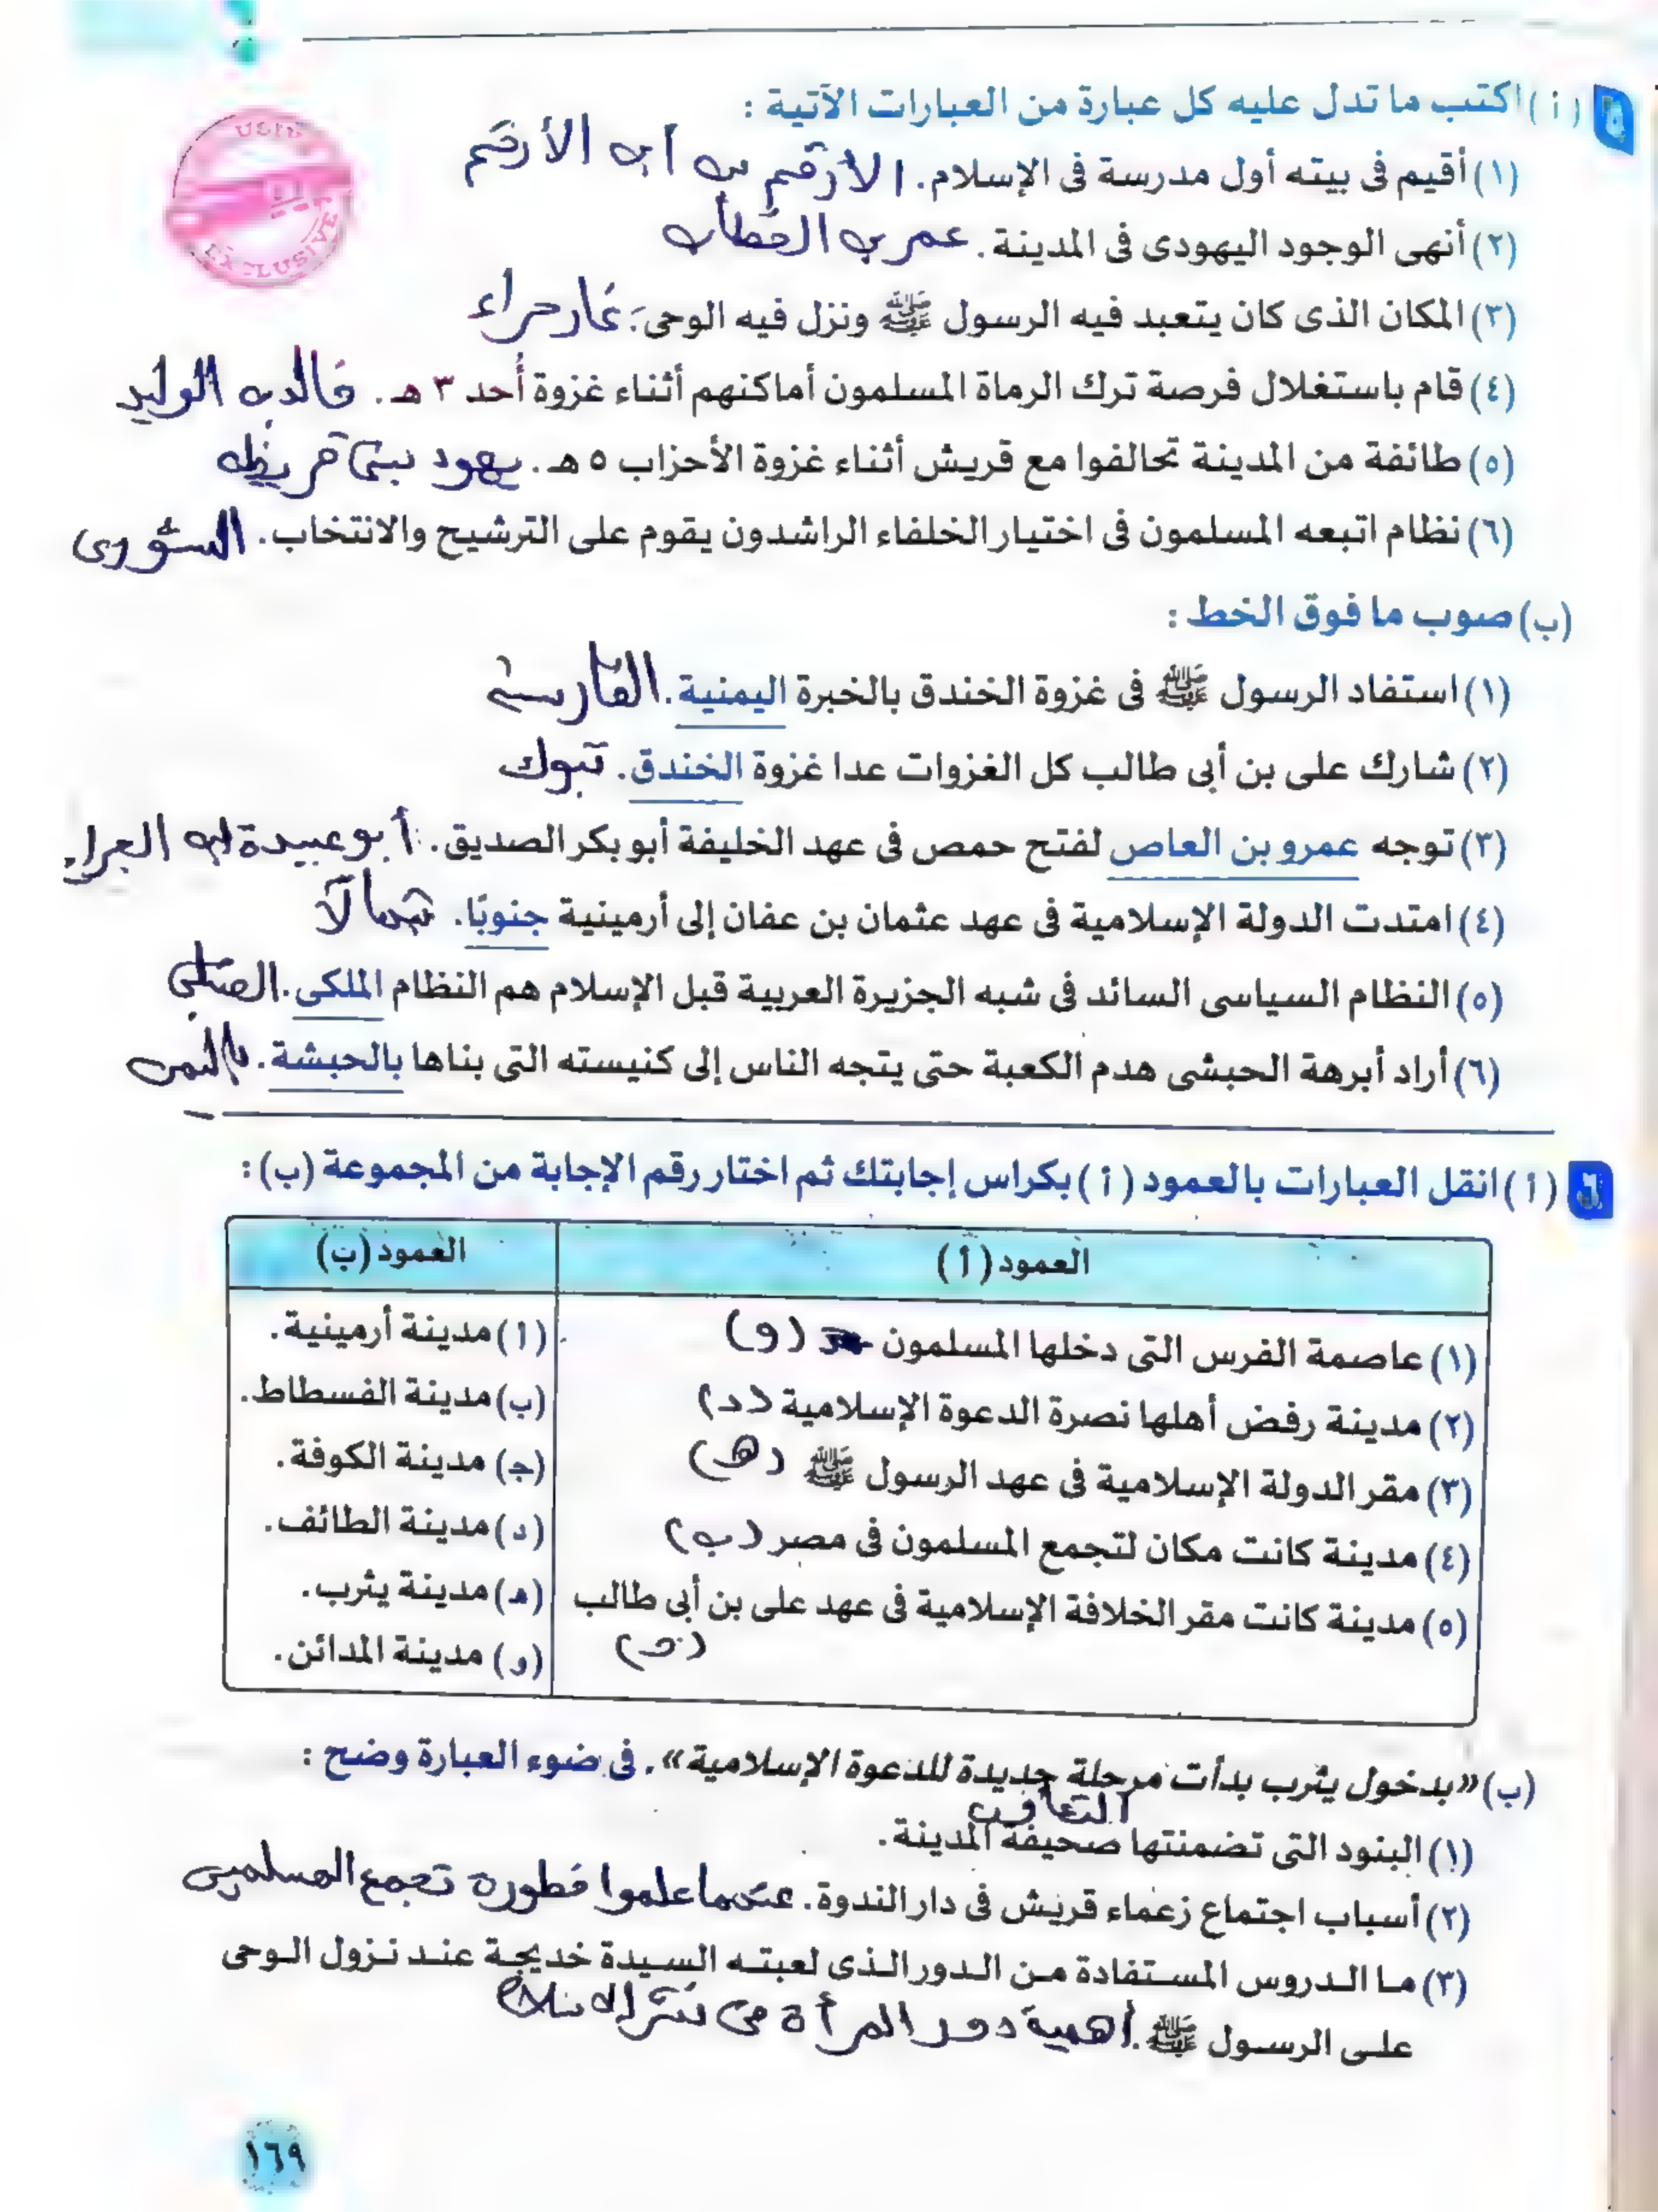 ٥ (أ) اكتب ما تدل عليه كل عبارة من العبارات الآتية :
(١) أقيم فى بيته أول مدرسة فى الإسلام. الأرقم بن أبى الأرقم
(٢) أنهى الوجود اليهودى فى المدينة. عمر بن الخطاب
(٣) المكان الذى كان يتعبد فيه الرسول ﷺ ونزل فيه الوحى. غار حراء
(٤) قام باستغلال فرصة ترك الرماة المسلمون أماكنهم أثناء غزوة أُحد ٣ هـ. خالد بن الوليد
(٥) طائفة من المدينة تحالفوا مع قريش أثناء غزوة الأحزاب ٥ هـ. يهود بنى قريظه
(٦) نظام اتبعه المسلمون فى اختيار الخلفاء الراشدون يقوم على الترشيح والانتخاب. الشورى
(ب) صوب ما فوق الخط :
(١) استفاد الرسول ﷺ فى غزوة الخندق بالخبرة اليمنية. الفارسية
(٢) شارك على بن أبى طالب كل الغزوات عدا غزوة الخندق. تبوك
(٣) توجه عمرو بن العاص لفتح حمص فى عهد الخليفة أبو بكر الصديق. أبو عبيدة ابن الجراح
(٤) امتدت الدولة الإسلامية فى عهد عثمان بن عفان إلى أرمينية جنوبًا. شمالاً
(٥) النظام السياسى السائد فى شبه الجزيرة العربية قبل الإسلام هم النظام الملكى. القبلى
(٦) أراد أبرهة الحبشى هدم الكعبة حتى يتجه الناس إلى كنيسته التى بناها بالحبشة. باليمن
٦ (أ) انقل العبارات بالعمود (أ) بكراس إجابتك ثم اختار رقم الإجابة من المجموعة (ب) :
العمود (أ)
(١) عاصمة الفرس التى دخلها المسلمون (و)
(٢) مدينة رفض أهلها نصرة الدعوة الإسلامية (د)
(٣) مقر الدولة الإسلامية فى عهد الرسول ﷺ (هـ)
(٤) مدينة كانت مكان لتجمع المسلمون فى مصر (ب)
(٥) مدينة كانت مقر الخلافة الإسلامية فى عهد على بن أبى طالب
(ج)
العمود (ب)
(أ) مدينة أرمينية.
(ب) مدينة الفسطاط.
(ج) مدينة الكوفة.
(د) مدينة الطائف.
(هـ) مدينة يثرب.
(و) مدينة المدائن.
(ب) «بدخول يثرب بدأت مرحلة جديدة للدعوة الإسلامية». فى ضوء العبارة وضح :
(١) البنود التى تضمنتها صحيفة المدينة.
(٢) أسباب اجتماع زعماء قريش فى دار الندوة. عندما علموا خطورة تجمع المسلمين
(٣) ما الدروس المستفادة من الدور الذى لعبته السيدة خديجة عند نزول الوحى
على الرسول ﷺ. أهمية دور المرأة فى نشر الاسلام
١٦٩